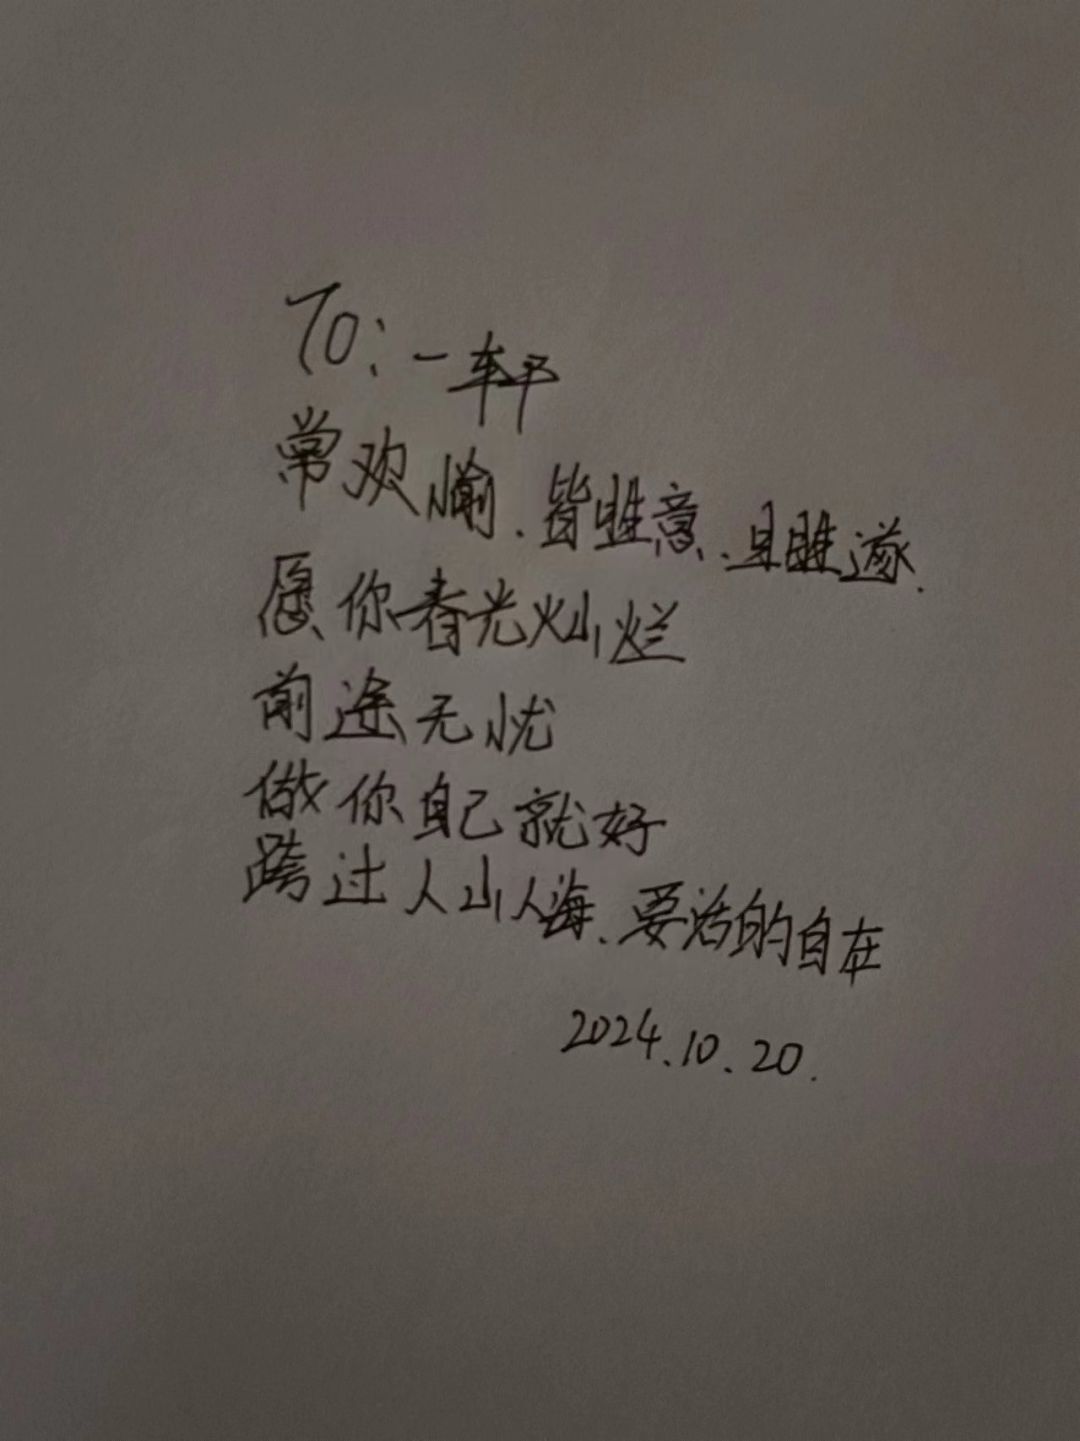 To: 一轩
常欢愉.皆胜意.且胜遂.
愿你春光灿烂
前途无忧
做你自己就好
跨过人山人海、要活的自在
2024.10.20.